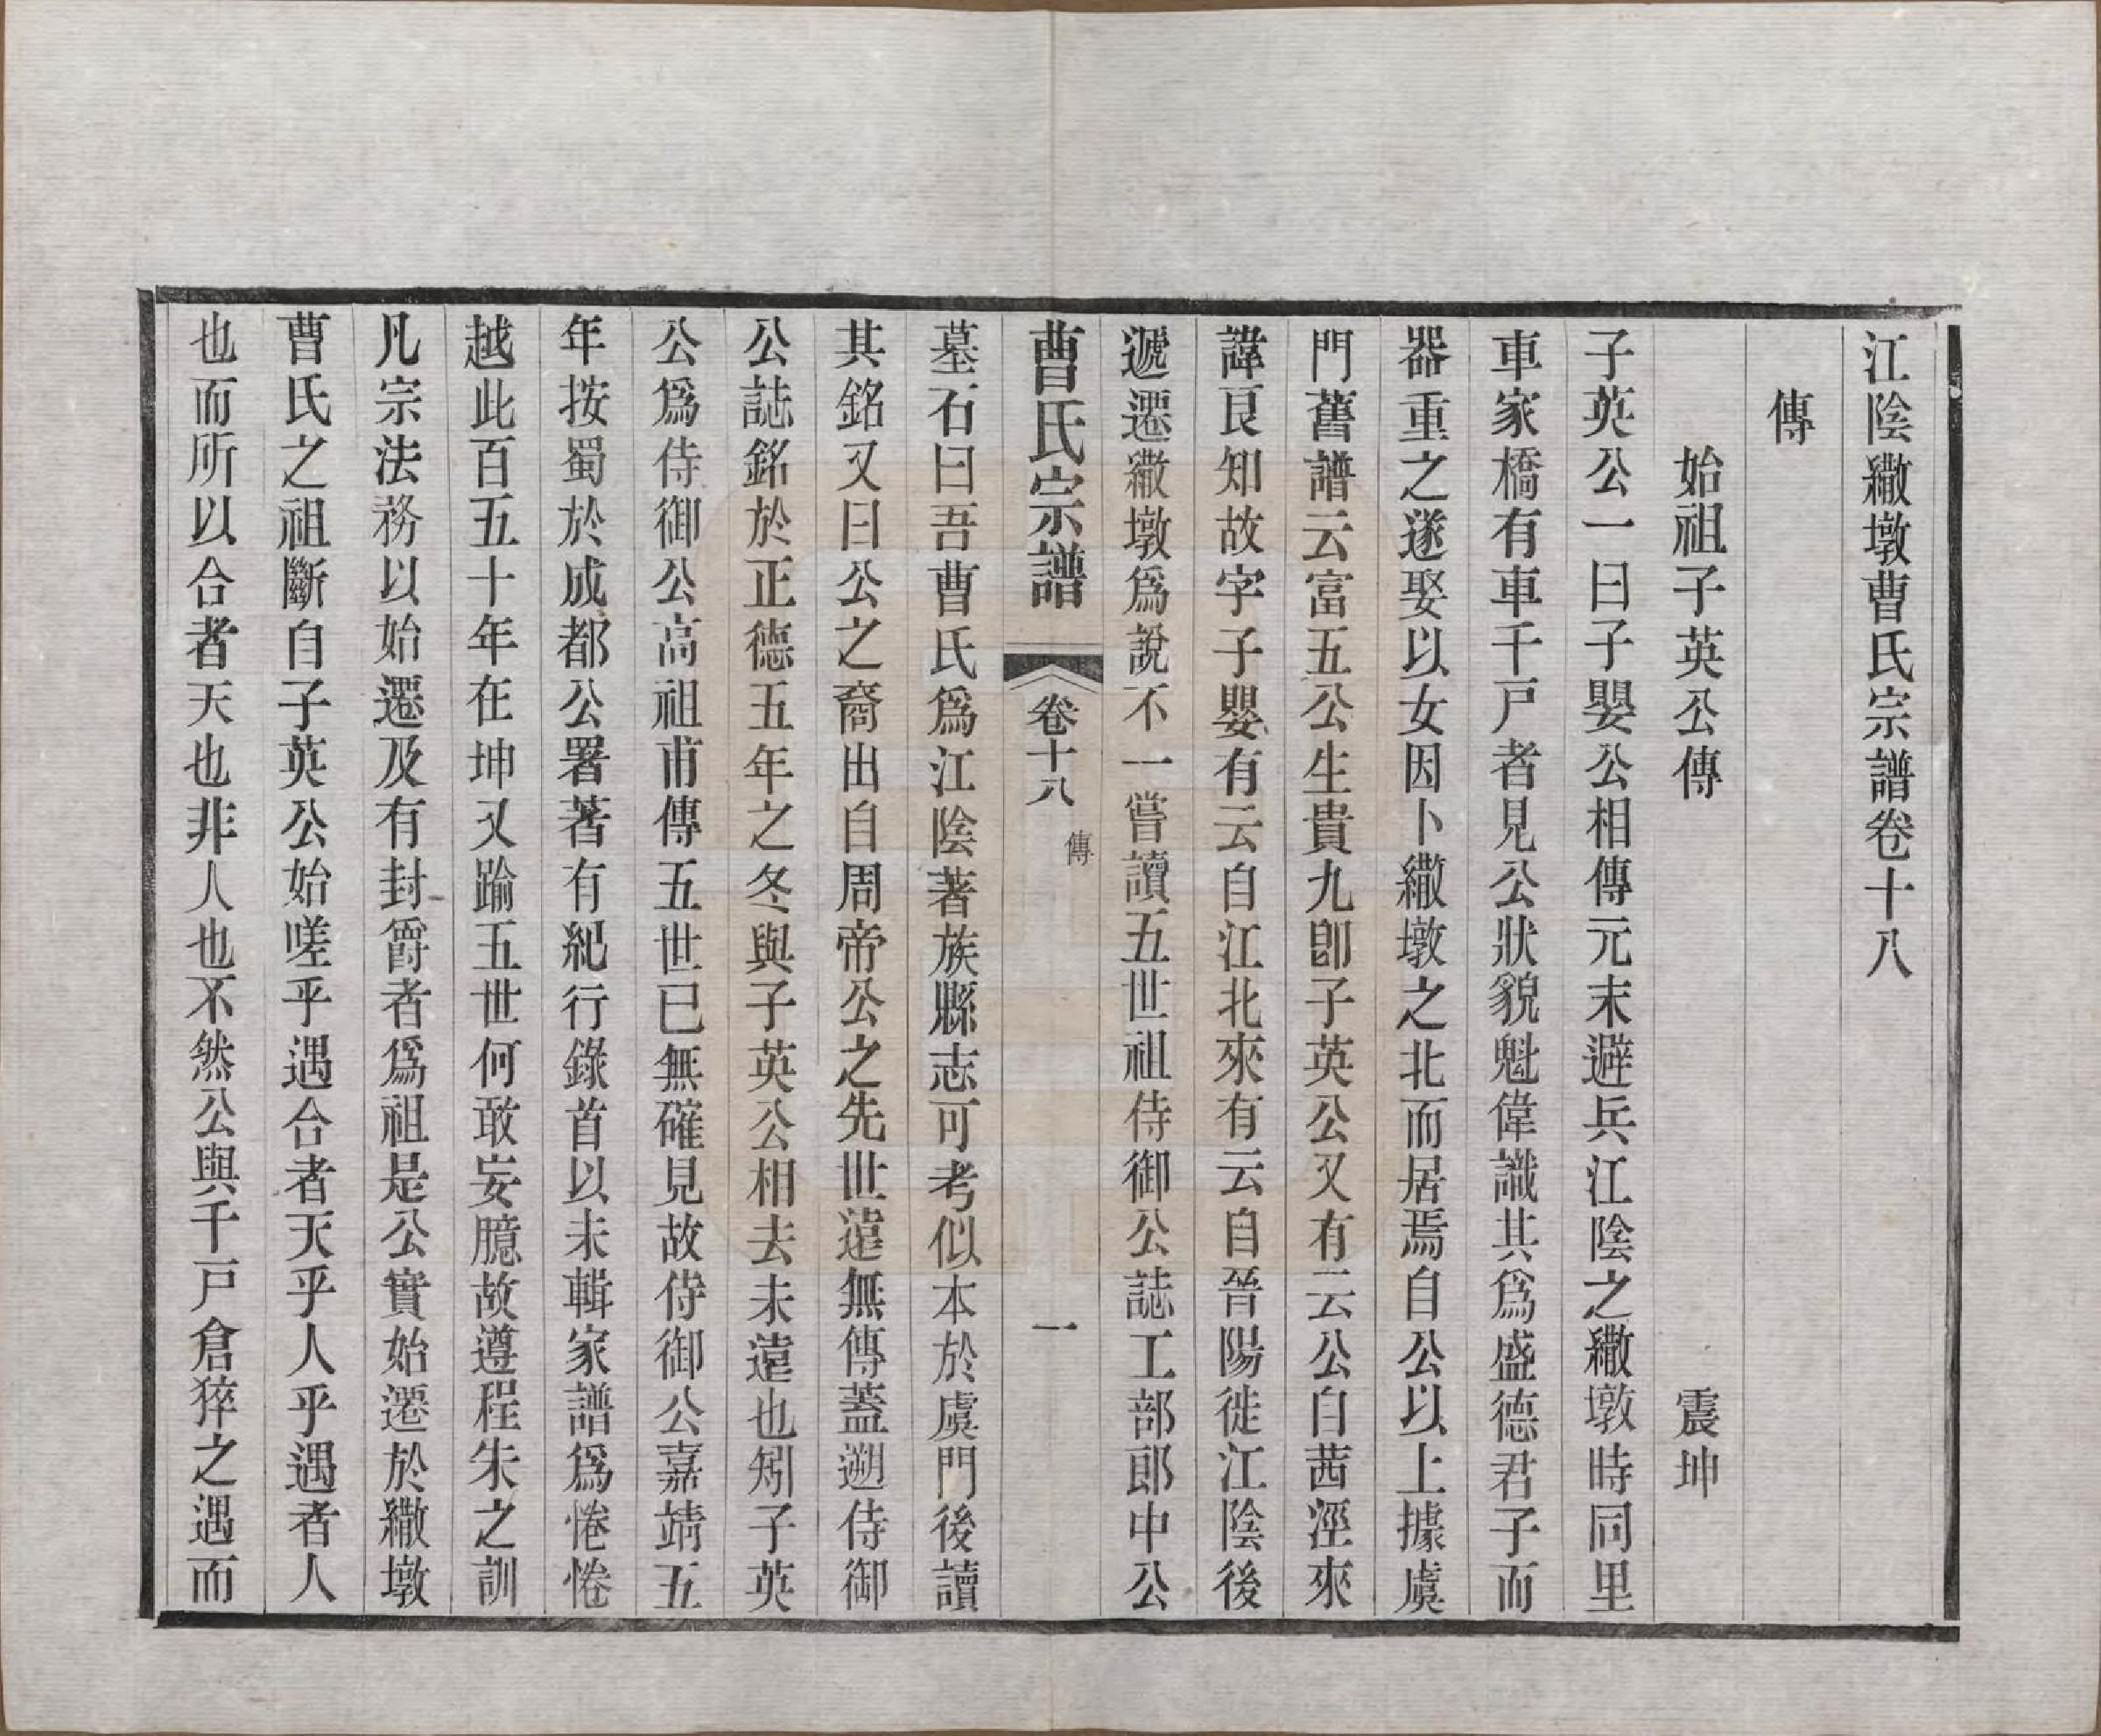 江陰繖墩曹氏宗譜卷十八
傳
始祖子英公傳 震坤
子英公一曰子嬰公相傳元末避兵江陰之繖墩時同里
車家橋有車千戸者見公狀貌魁偉識其爲盛德君子而
器重之遂娶以女因卜繖墩之北而居焉自公以上據虞
門舊譜云富五公生貴九卽子英公又有云公自茜涇來
諱艮知故字子嬰有云自江北來有云自晉陽徙江陰後
遞遷繖墩爲說不一嘗讀五世祖侍御公誌工部郎中公
曹氏宗譜 卷十八 傳 一
墓石曰吾曹氏爲江陰著族縣志可考似本於虞門後讀
其銘又曰公之裔出自周帝公之先世遠無傳蓋遡侍御
公誌銘於正德五年之冬與子英公相去未遠也矧子英
公爲侍御公高祖甫傳五世已無確見故侍御公嘉靖五
年按蜀於成都公署著有紀行錄首以未輯家譜爲惓惓
越此百五十年在坤又踰五世何敢妄臆故遵程朱之訓
凡宗法務以始遷及有封爵者爲祖是公實始遷於繖墩
曹氏之祖斷自子英公始嗟乎遇合者天乎人乎遇者人
也而所以合者天也非人也不然公與千戸倉猝之遇而